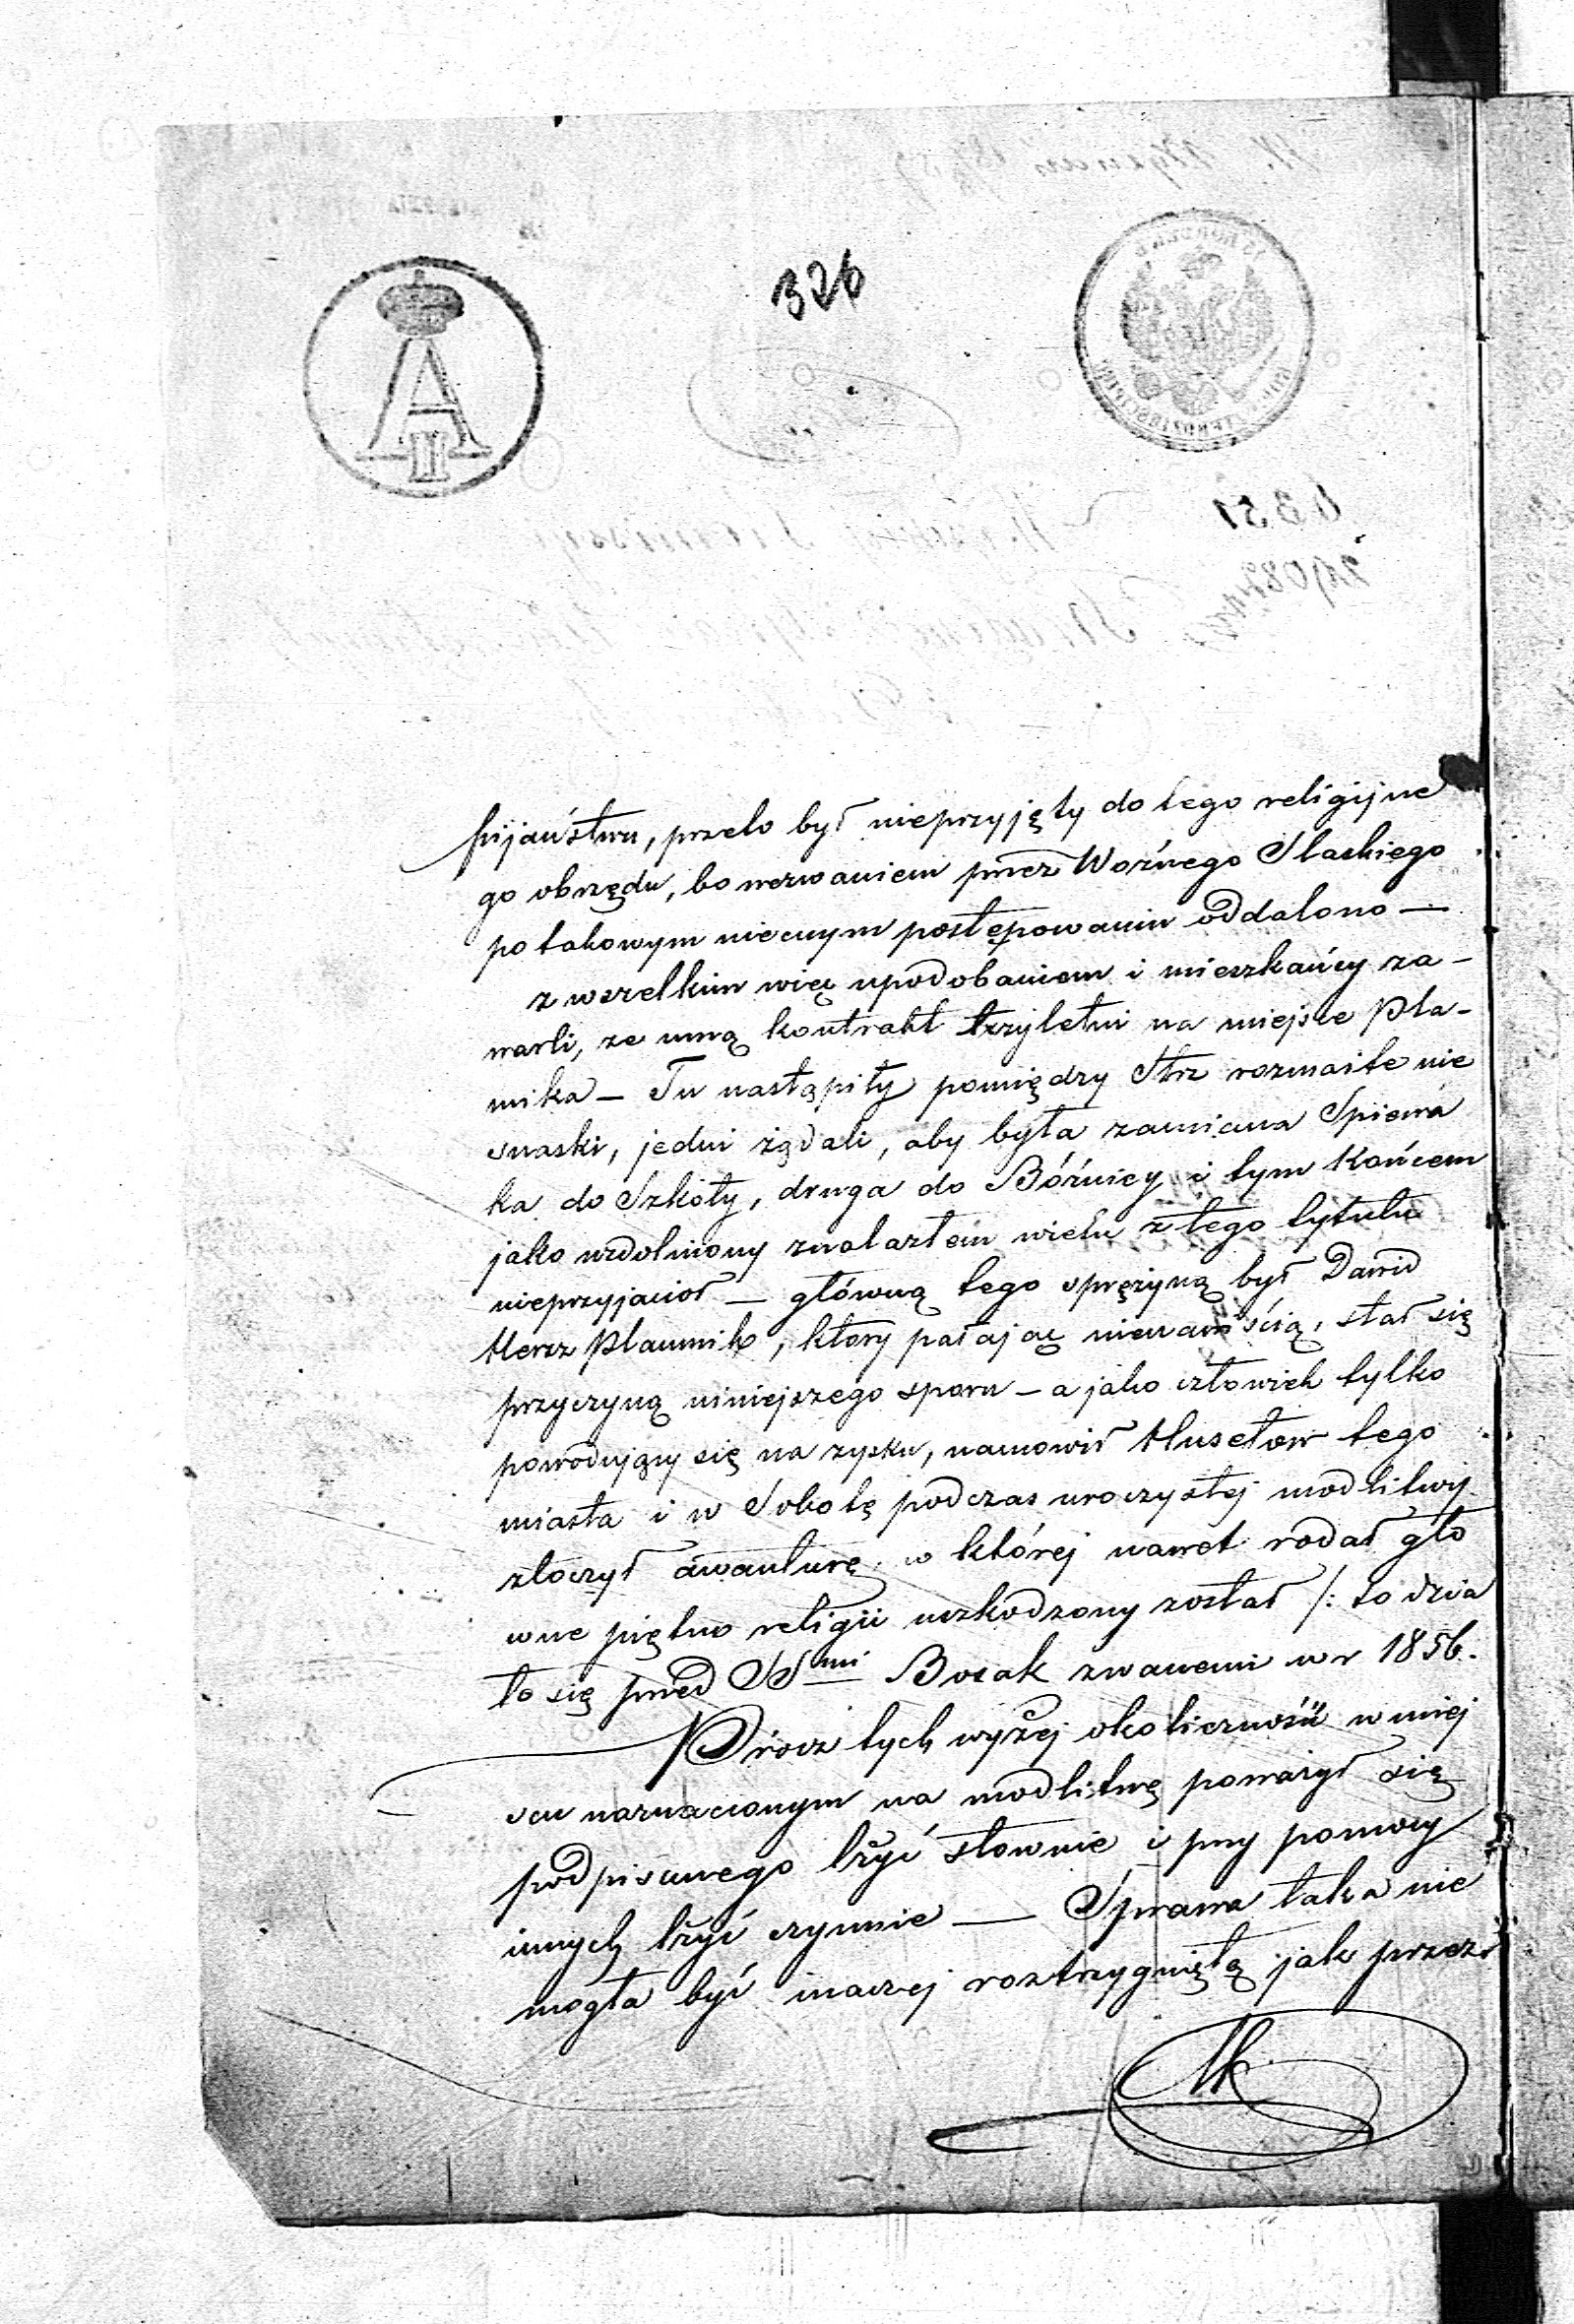 326
A
II
pijaństwu, przeto był nieprzyjęty do tego religijne
go obrzędu, bo wezwaniem przez Woźnego
po takowym niecnym postępowaniu oddalono —
z wszelkim więc upodobaniem i mieszkańcy za-
warli, ze mną kontrakt trzyletni na miejsce Pła-
wnika — Tu nastąpiły pomiędzy Str rozmaite nie
snaski, jedni żądali, aby była zamiana Śpiewa
ka do Szkoły, druga do Bóźnicy i tym końcem
jako uzdolniony znalazłem wielu z tego tytułu
nieprzyjaciół — główną tego sprężyną był Dawid
Hersz Pławnik, który pałając nienawiścią, stał się
przyczyną niniejszego sporu — a jako człowiek tylko
powodujący się na zysku, namowił tego
miasta i w Sobotę podczas uroczystej modlitwy
złoczył awanturę, w której nawet rodał głó
wne piętno religii uszkodzony został /: to dzia
ło się przed SS mi Bosak zwanemi w r 1856.
Prócz tych wyżej okoliczności w miej
scu naznaczonym na modlitwę poważył się
podpisanego lżyć słownie i przy pomocy
innych lżyć czynnie — Sprawa taka nie
mogła być inaczej roztrzygniętą jak przez